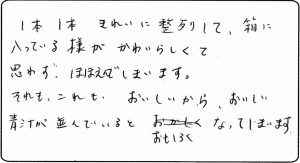 1本1本 きれいに整列して、箱に
入っている様がかわいらしくて
思わず、ほほえんでしまいます。
それも、これも おいしいから、おいしい
青汁が並んでいると おかしく なってしまいます
おもしろく